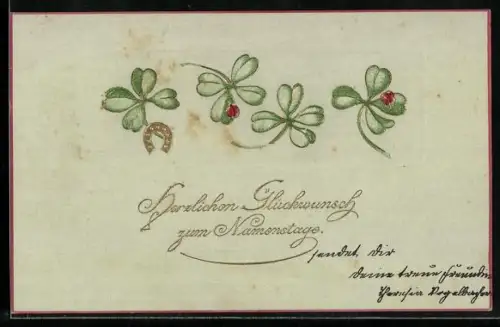 Herzlichen Glückwunsch
zum Namenstage.
sendet Dir
deine treue Freundin
Theresia Vogelbacher